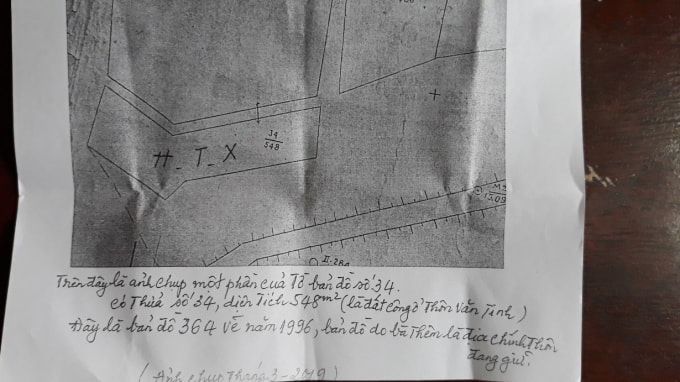 34
548
H_T_X
M4
13.09
II-28a
Trên đây là ảnh chụp một phần của Tờ bản đồ số 34.
có Thửa số 34, diện Tích 548m² (là đất công ở Thôn Văn Tinh)
Đây là bản đồ 364 vẽ năm 1996, bản đồ do bà Thêm là địa chính Thôn
đang giữ.
(Ảnh chụp Tháng 3-2019)